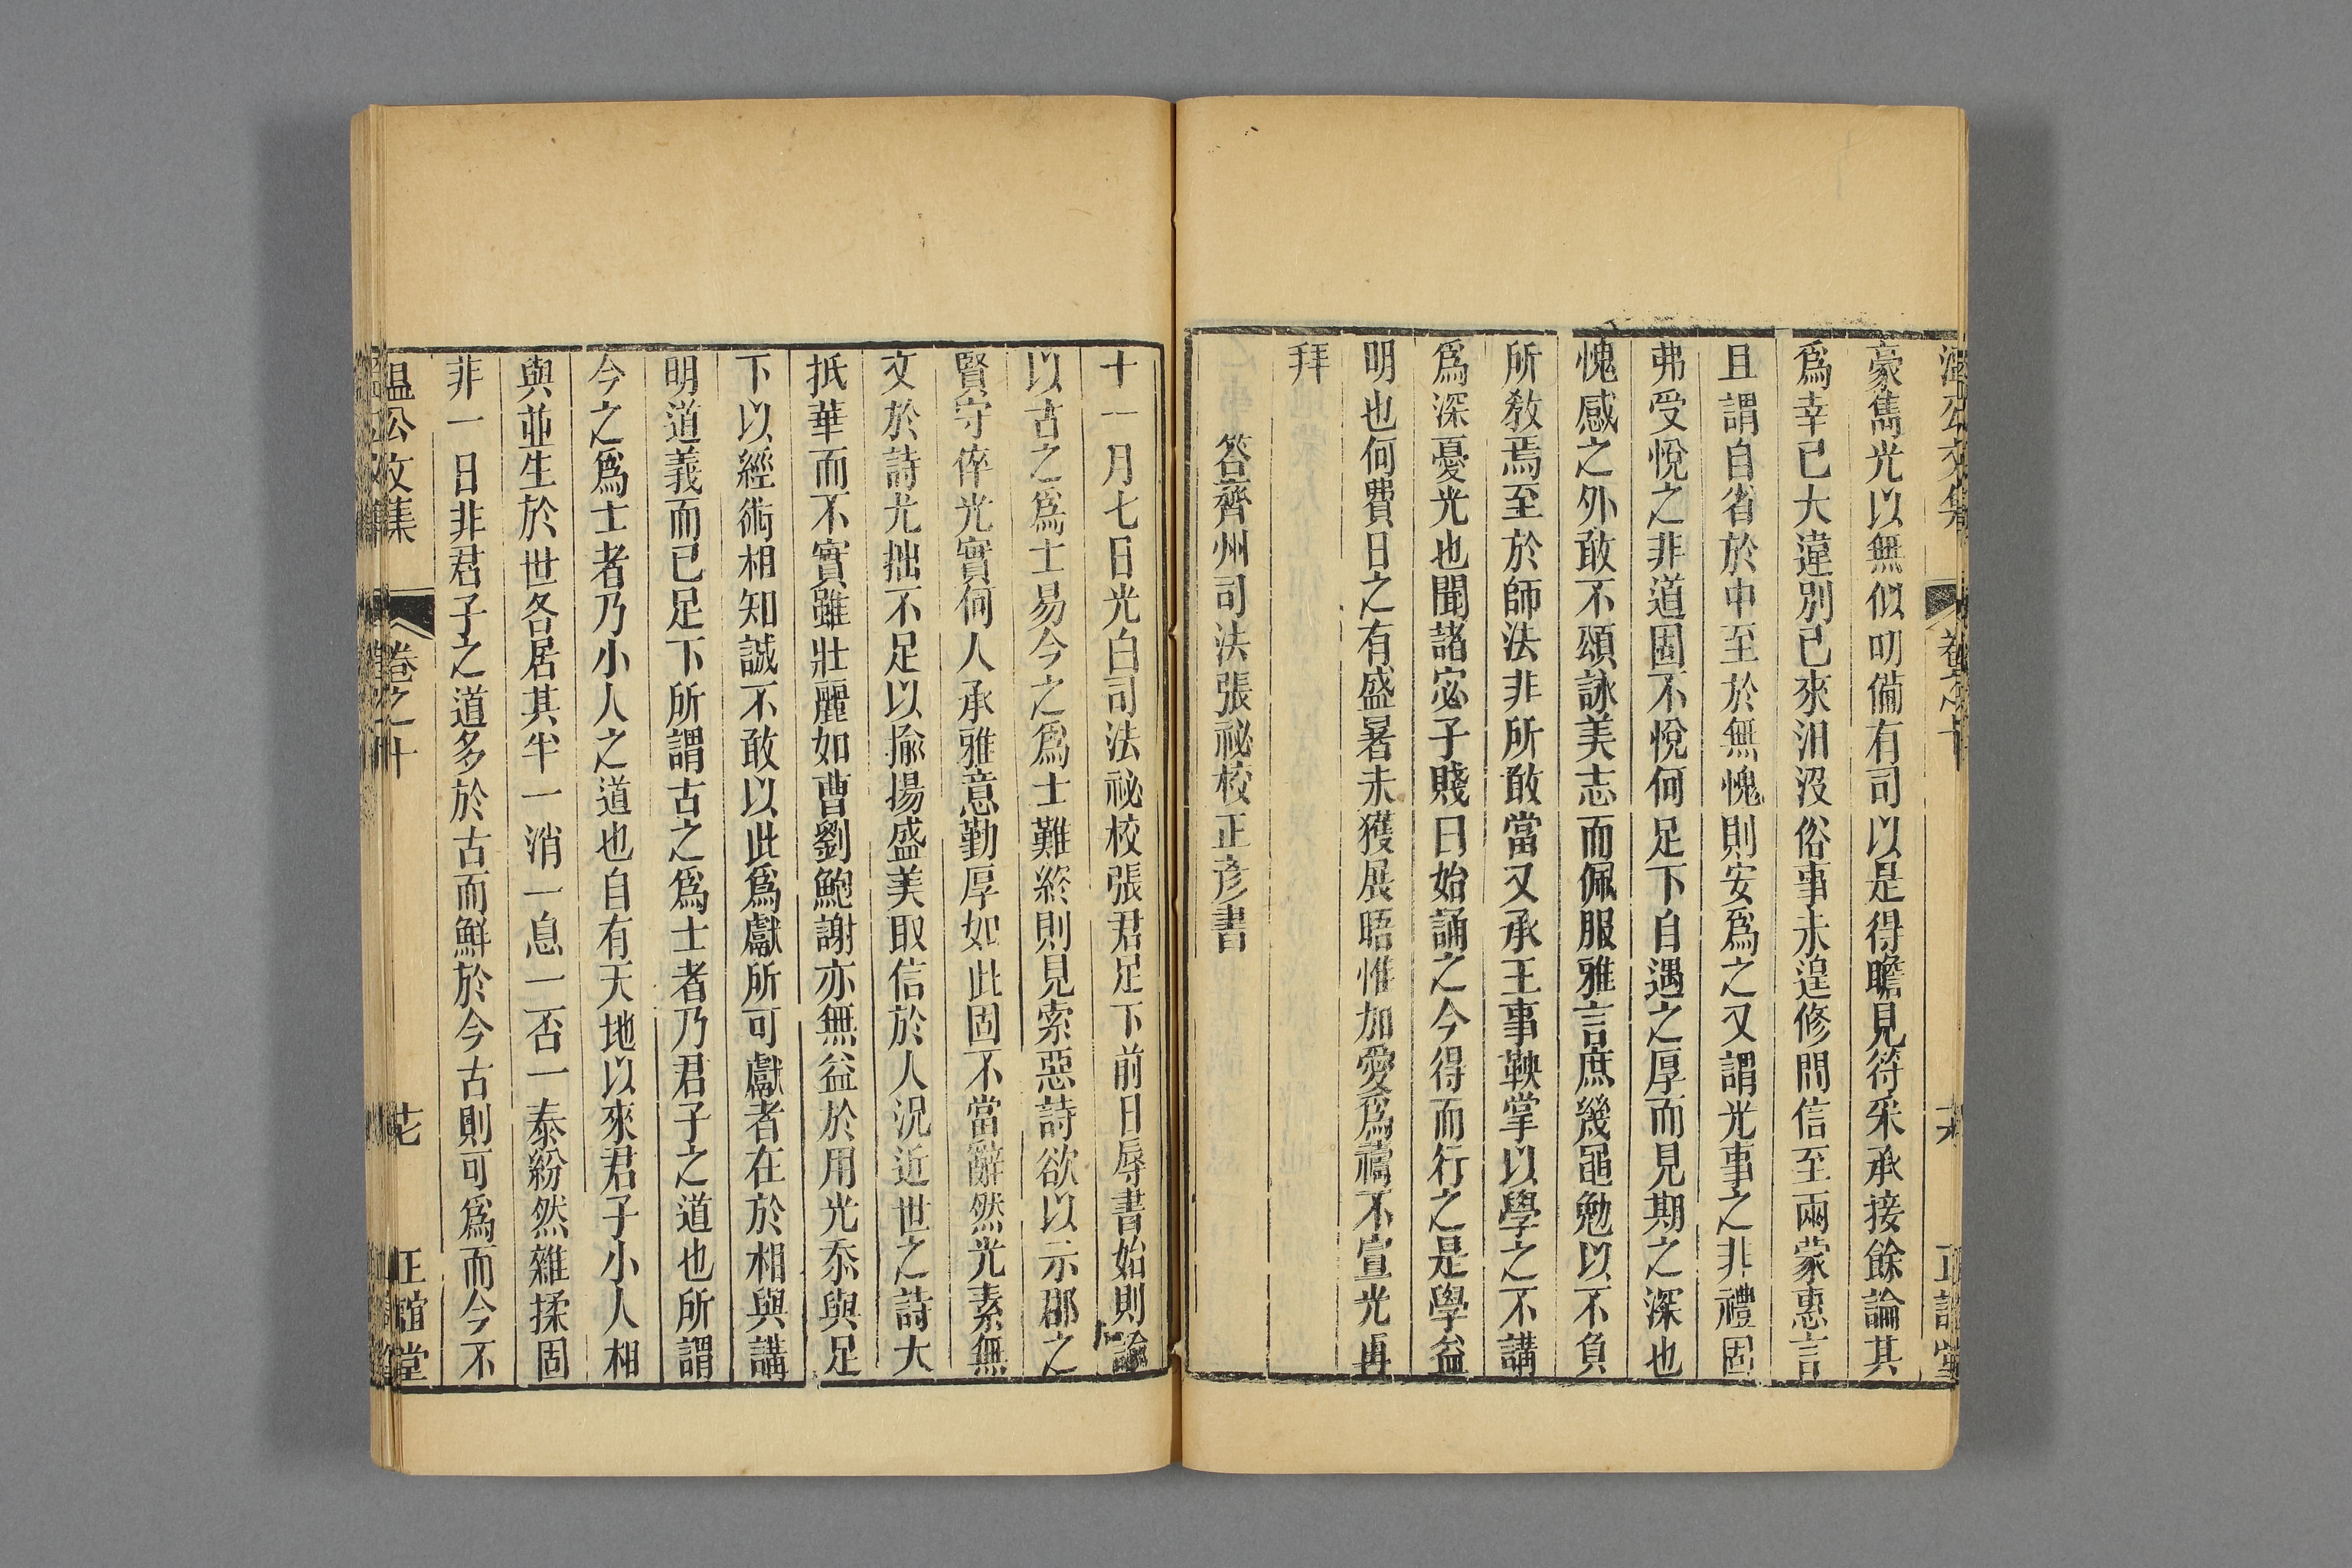 豪雋光以無似叨備有司以是得瞻見符采承接餘論其
爲幸已大違別已來汨沒俗事未遑修問信至兩蒙惠言
且謂自省於中至於無愧則安爲之又謂光事之非禮固
弗受悅之非道固不悅何足下自遇之厚而見期之深也
愧感之外敢不頌詠美志而佩服雅言庶幾黽勉以不負
所敎焉至於師法非所敢當又承王事鞅掌以學之不講
爲深憂光也聞諸宓子賤曰始誦之今得而行之是學益
明也何費日之有盛暑未獲展晤惟加愛爲禱不宣光再
拜
答齊州司法張祕校正彥書
十一月七日光白司法祕校張君足下前日辱書始則論
以古之爲士易今之爲士難終則見索惡詩欲以示郡之
賢守倅光實何人承雅意勤厚如此固不當辭然光素無
文於詩尤拙不足以揄揚盛美取信於人況近世之詩大
抵華而不實雖壯麗如曹劉鮑謝亦無益於用光忝與足
下以經術相知誠不敢以此爲獻所可獻者在於相與講
明道義而已足下所謂古之爲士者乃君子之道也所謂
今之爲士者乃小人之道也自有天地以來君子小人相
與並生於世各居其半一消一息一否一泰紛然雜揉固
非一日非君子之道多於古而鮮於今古則可爲而今不
溫公文集 卷之十 正誼堂